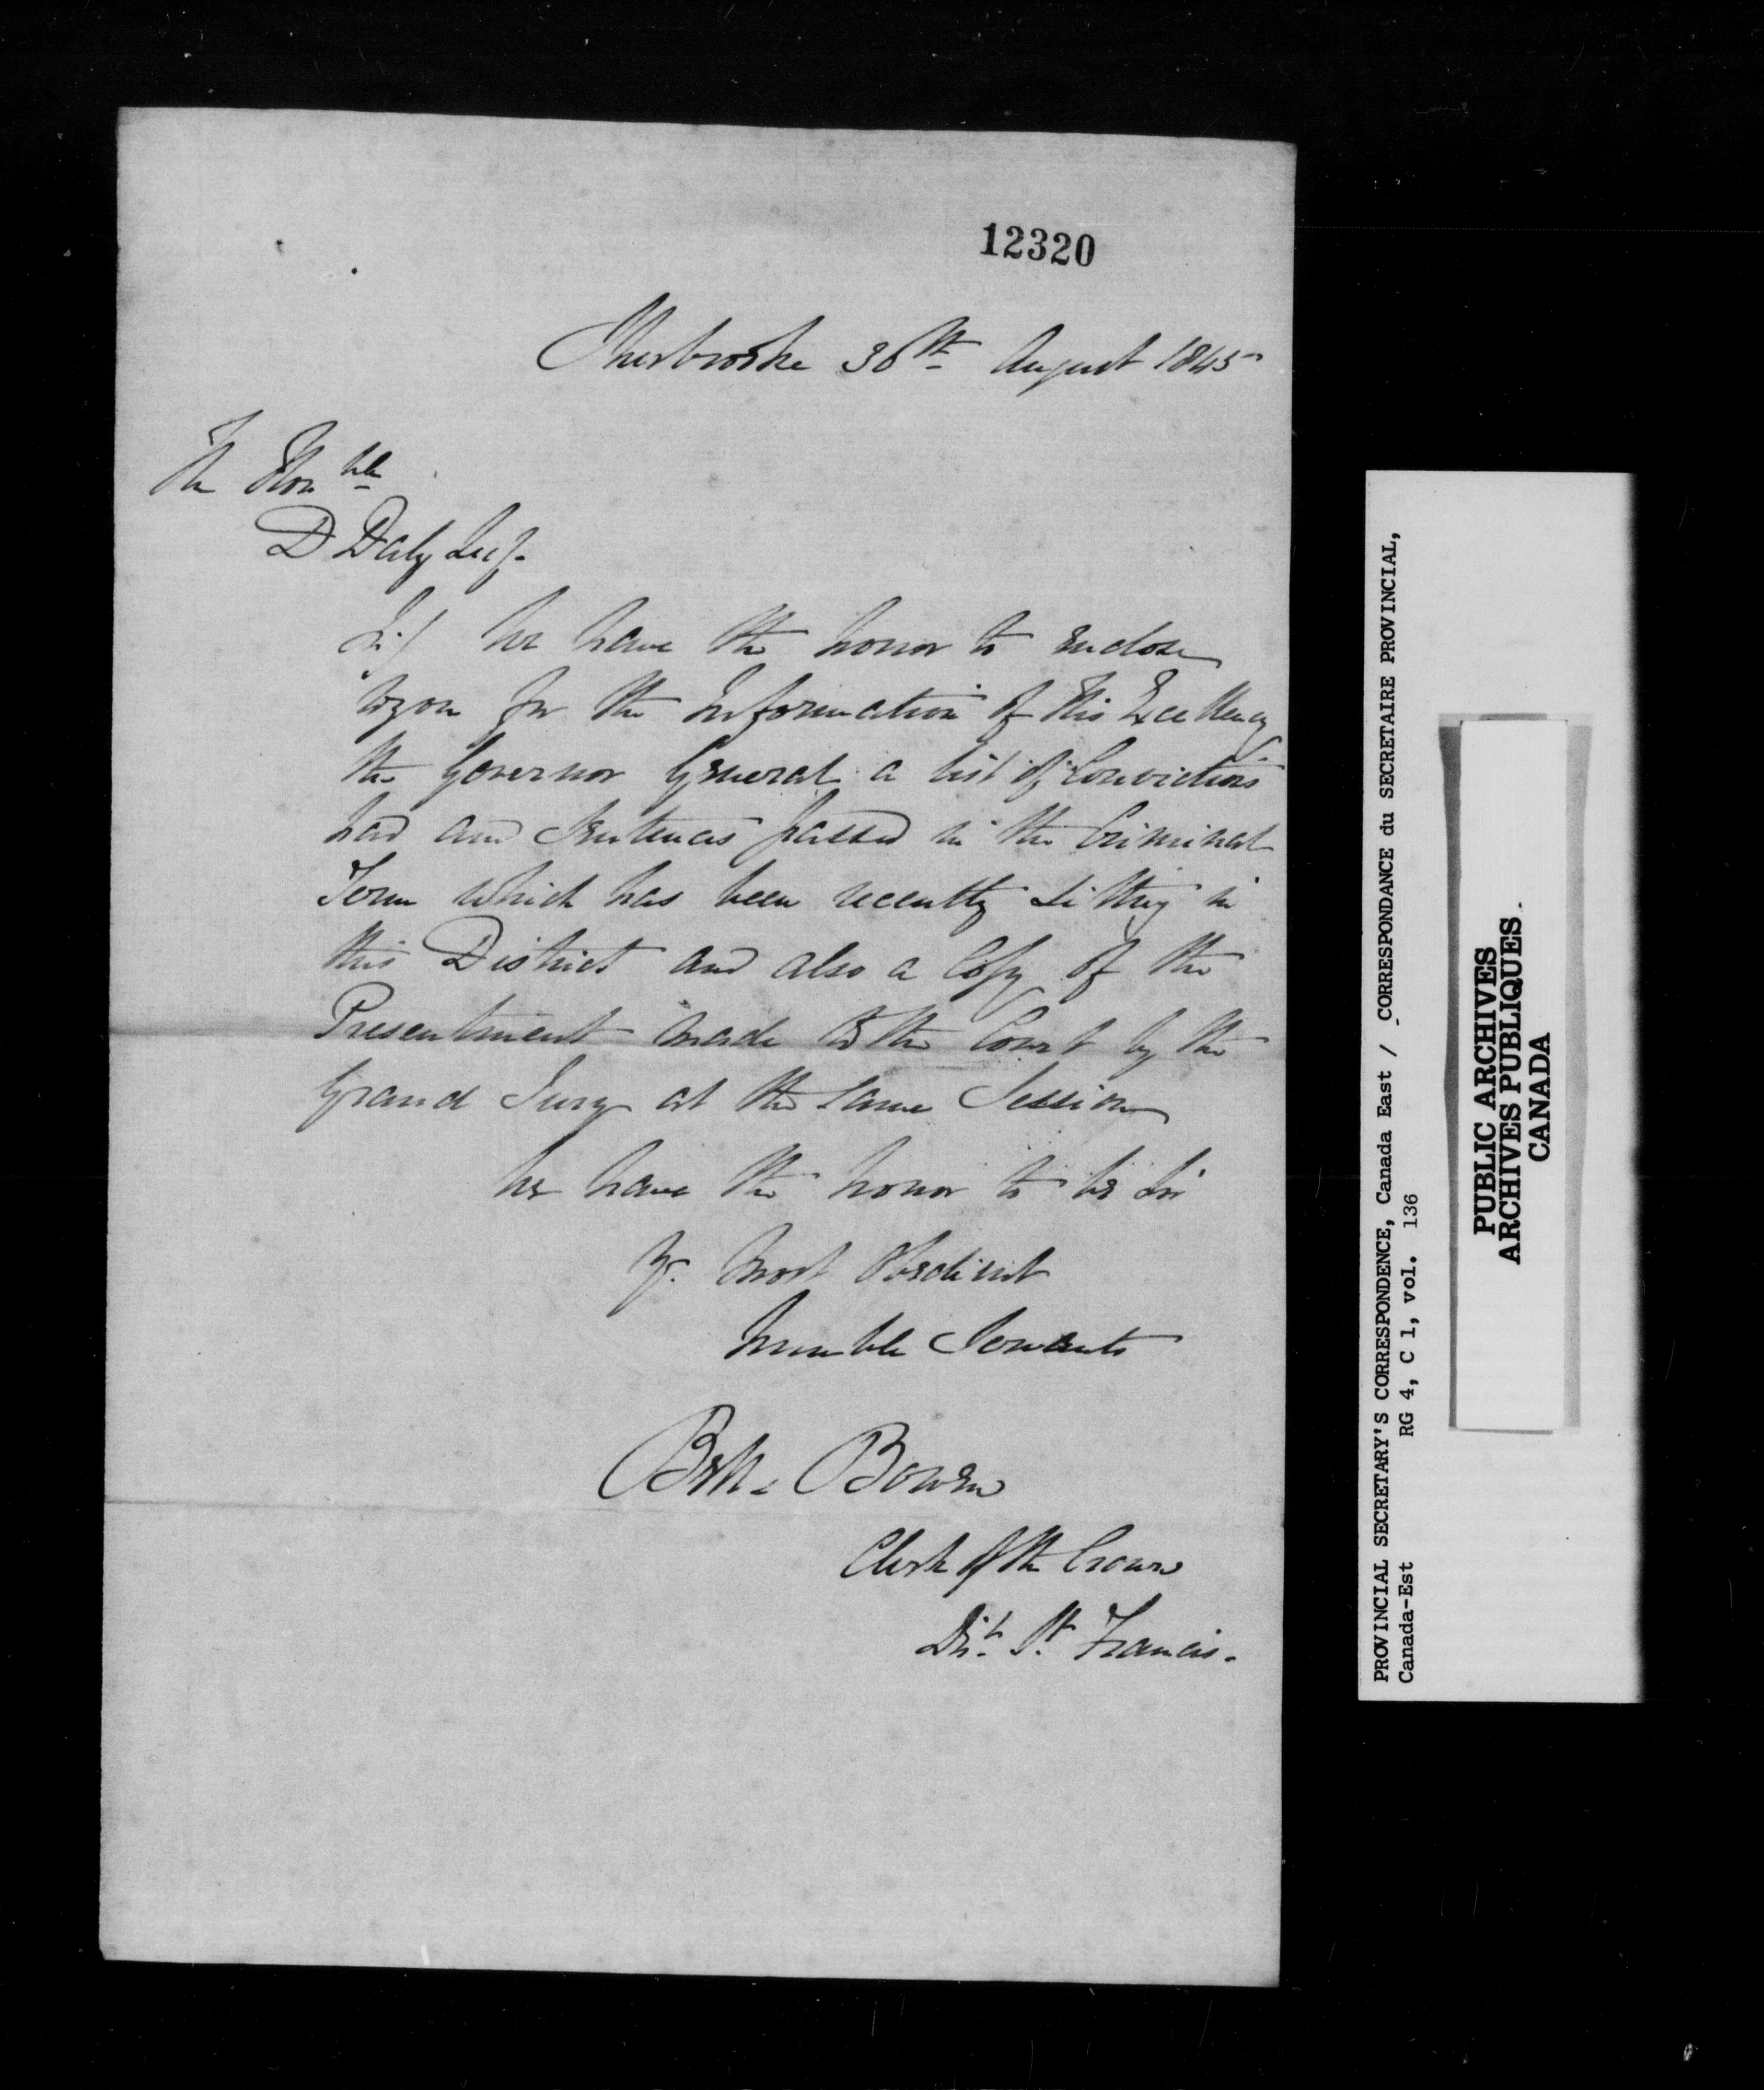 12320
Sherbrooke 30th August 1845
The Honble
D Daly Secy.
Sir/ We have the honor to enclose
to you for the Information of His Excellency
the Governor General a list of Convictions
had and Sentences passed in the Criminal
Term which has been recently sitting in
this District and also a Copy of the
Presentment made to the Court by the
Grand Jury at the same Session
We have the honor to be Sir
Yr. Most Obedient
humble Servants
Bowen
Clerk of the Crown
Dist. St. Francis.
PROVINCIAL SECRETARY'S CORRESPONDENCE, Canada East / CORRESPONDANCE du SECRETAIRE PROVINCIAL,
Canada-Est RG 4, C 1, vol. 136
PUBLIC ARCHIVES
ARCHIVES PUBLIQUES
CANADA